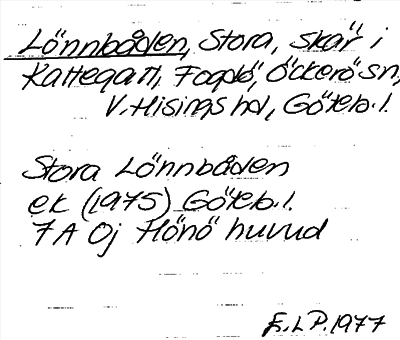 Lönnbåden, Stora, skär i
Kattegatt, Fogelö, Öckerö sn,
V. Hisings hd, Göteb. l.
Stora Lönnbåden
ek (1975) Göteb. l.
7 A Öj Hönö huvud
E.L.P. 1977